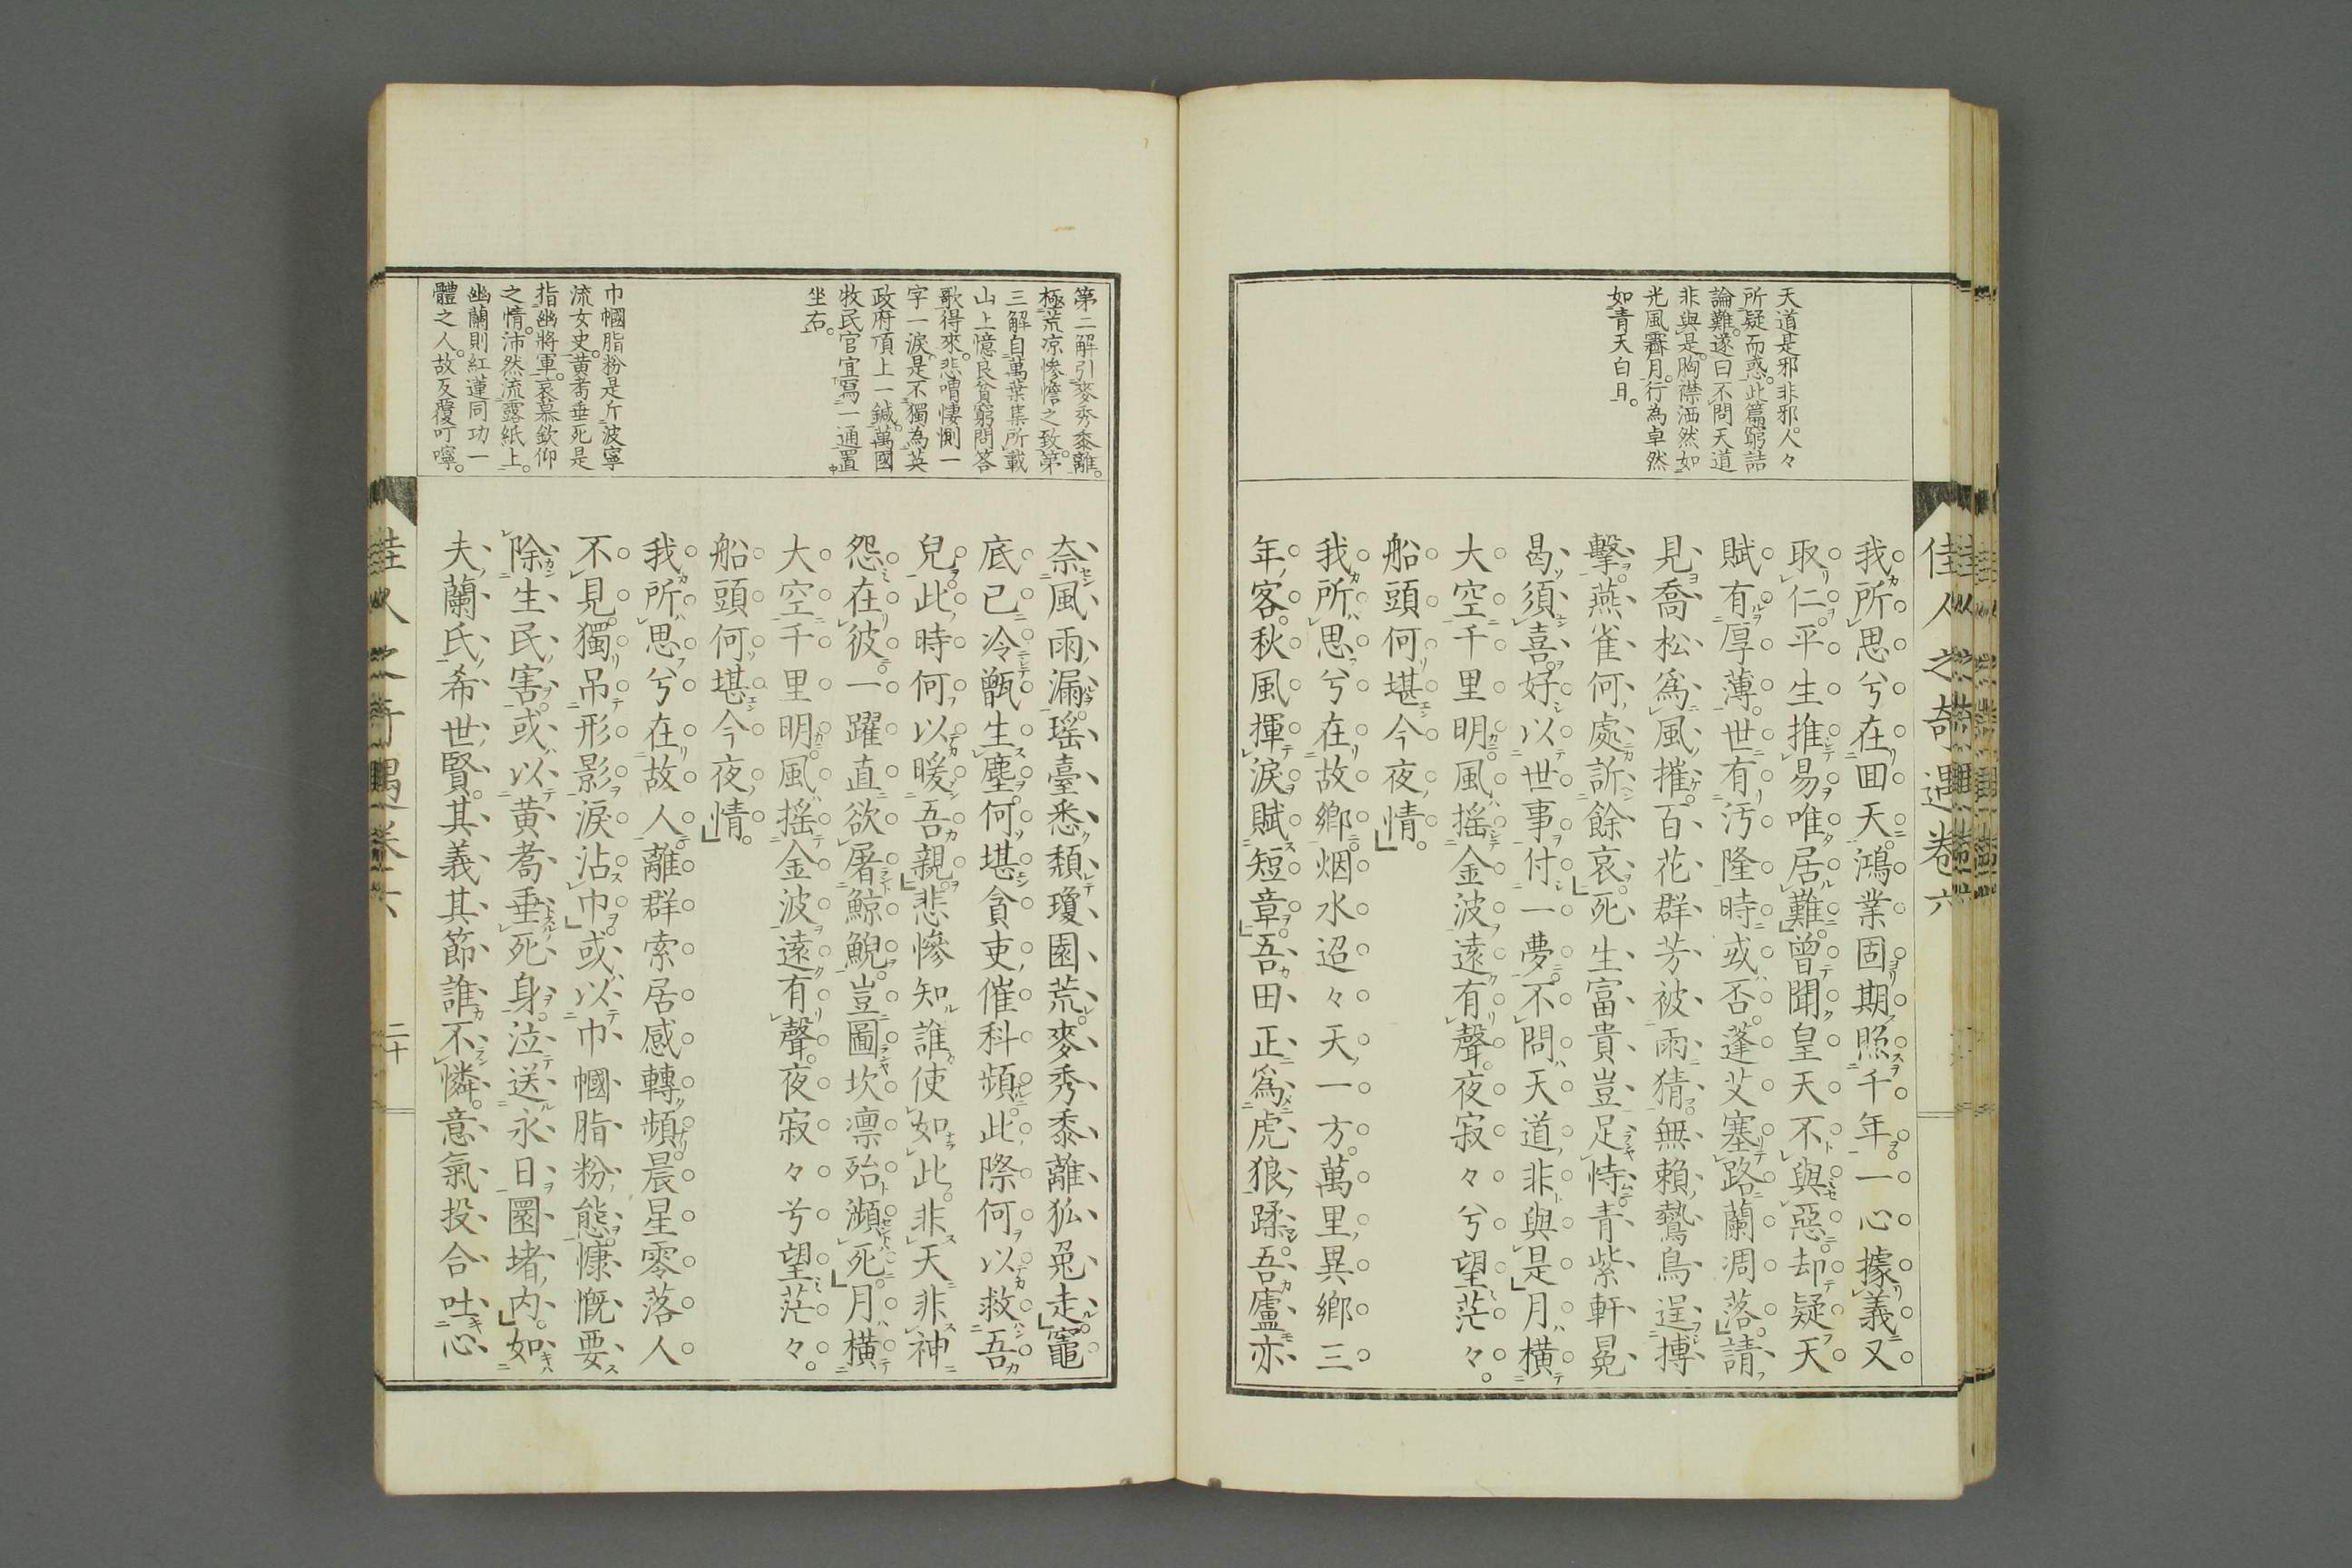 佳人之奇遇卷六
天道是邪非邪。人々
所疑而惑。此篇窮詰
論難。遂曰不問天道
非與是。胸襟洒然如
光風霽月。行為卓然
如青天白日。
我所思兮在回天。鴻業固期照千年。一心據義又
取仁。平生推易唯居難。曾聞皇天不與惡。却疑天
賦有厚薄。世有汚隆時或否。蓬艾塞路蘭凋落。請
見喬松為風摧。百花群芳被雨猜。無賴鷙鳥逞搏
擊。燕雀何處訴餘哀。死生富貴豈足恃。青紫軒冕
曷須喜。好以世事付一夢。不問天道非與是。月橫
大空千里明。風搖金波遠有聲。夜寂々兮望茫々。
船頭何堪今夜情。
我所思兮在故鄉。烟水迢々天一方。萬里異鄉三
年客。秋風揮淚賦短章。吾田正為虎狼蹂。吾廬亦
第二解引麥秀黍離。
極荒凉慘憺之致。第
三解自萬葉集所載
山上憶良貧窮問答
歌得來。悲嘈悽惻一
字一淚。是不獨為英
政府頂上一鍼。萬國
牧民官宜寫一通置
坐右。
巾幗脂粉是斥波寧
流女史。黃耉垂死是
指幽將軍。哀慕欽仰
之情。沛然流露紙上。
幽蘭則紅蓮同功一
體之人。故反覆叮嚀。
奈風雨漏。瑤臺悉頽瓊園荒。麥秀黍離狐兎走。竈
底已冷甑生塵。何堪貪吏催科頻。此際何以救吾
兒。此時何以暖吾親。悲慘知誰使如此。非天非神
怨在彼。一躍直欲屠鯨鯢。豈圖坎凛殆瀕死。月橫
大空千里明。風搖金波遠有聲。夜寂々兮望茫々。
船頭何堪今夜情。
我所思兮在故人。離群索居感轉頻。晨星零落人
不見。獨吊形影淚沾巾。或以巾幗脂粉態。慷慨要
除生民害。或以黃耉垂死身。泣送永日圜堵內。如
夫蘭氏希世賢。其義其節誰不憐。意氣投合吐心
佳人之奇遇卷六
二十